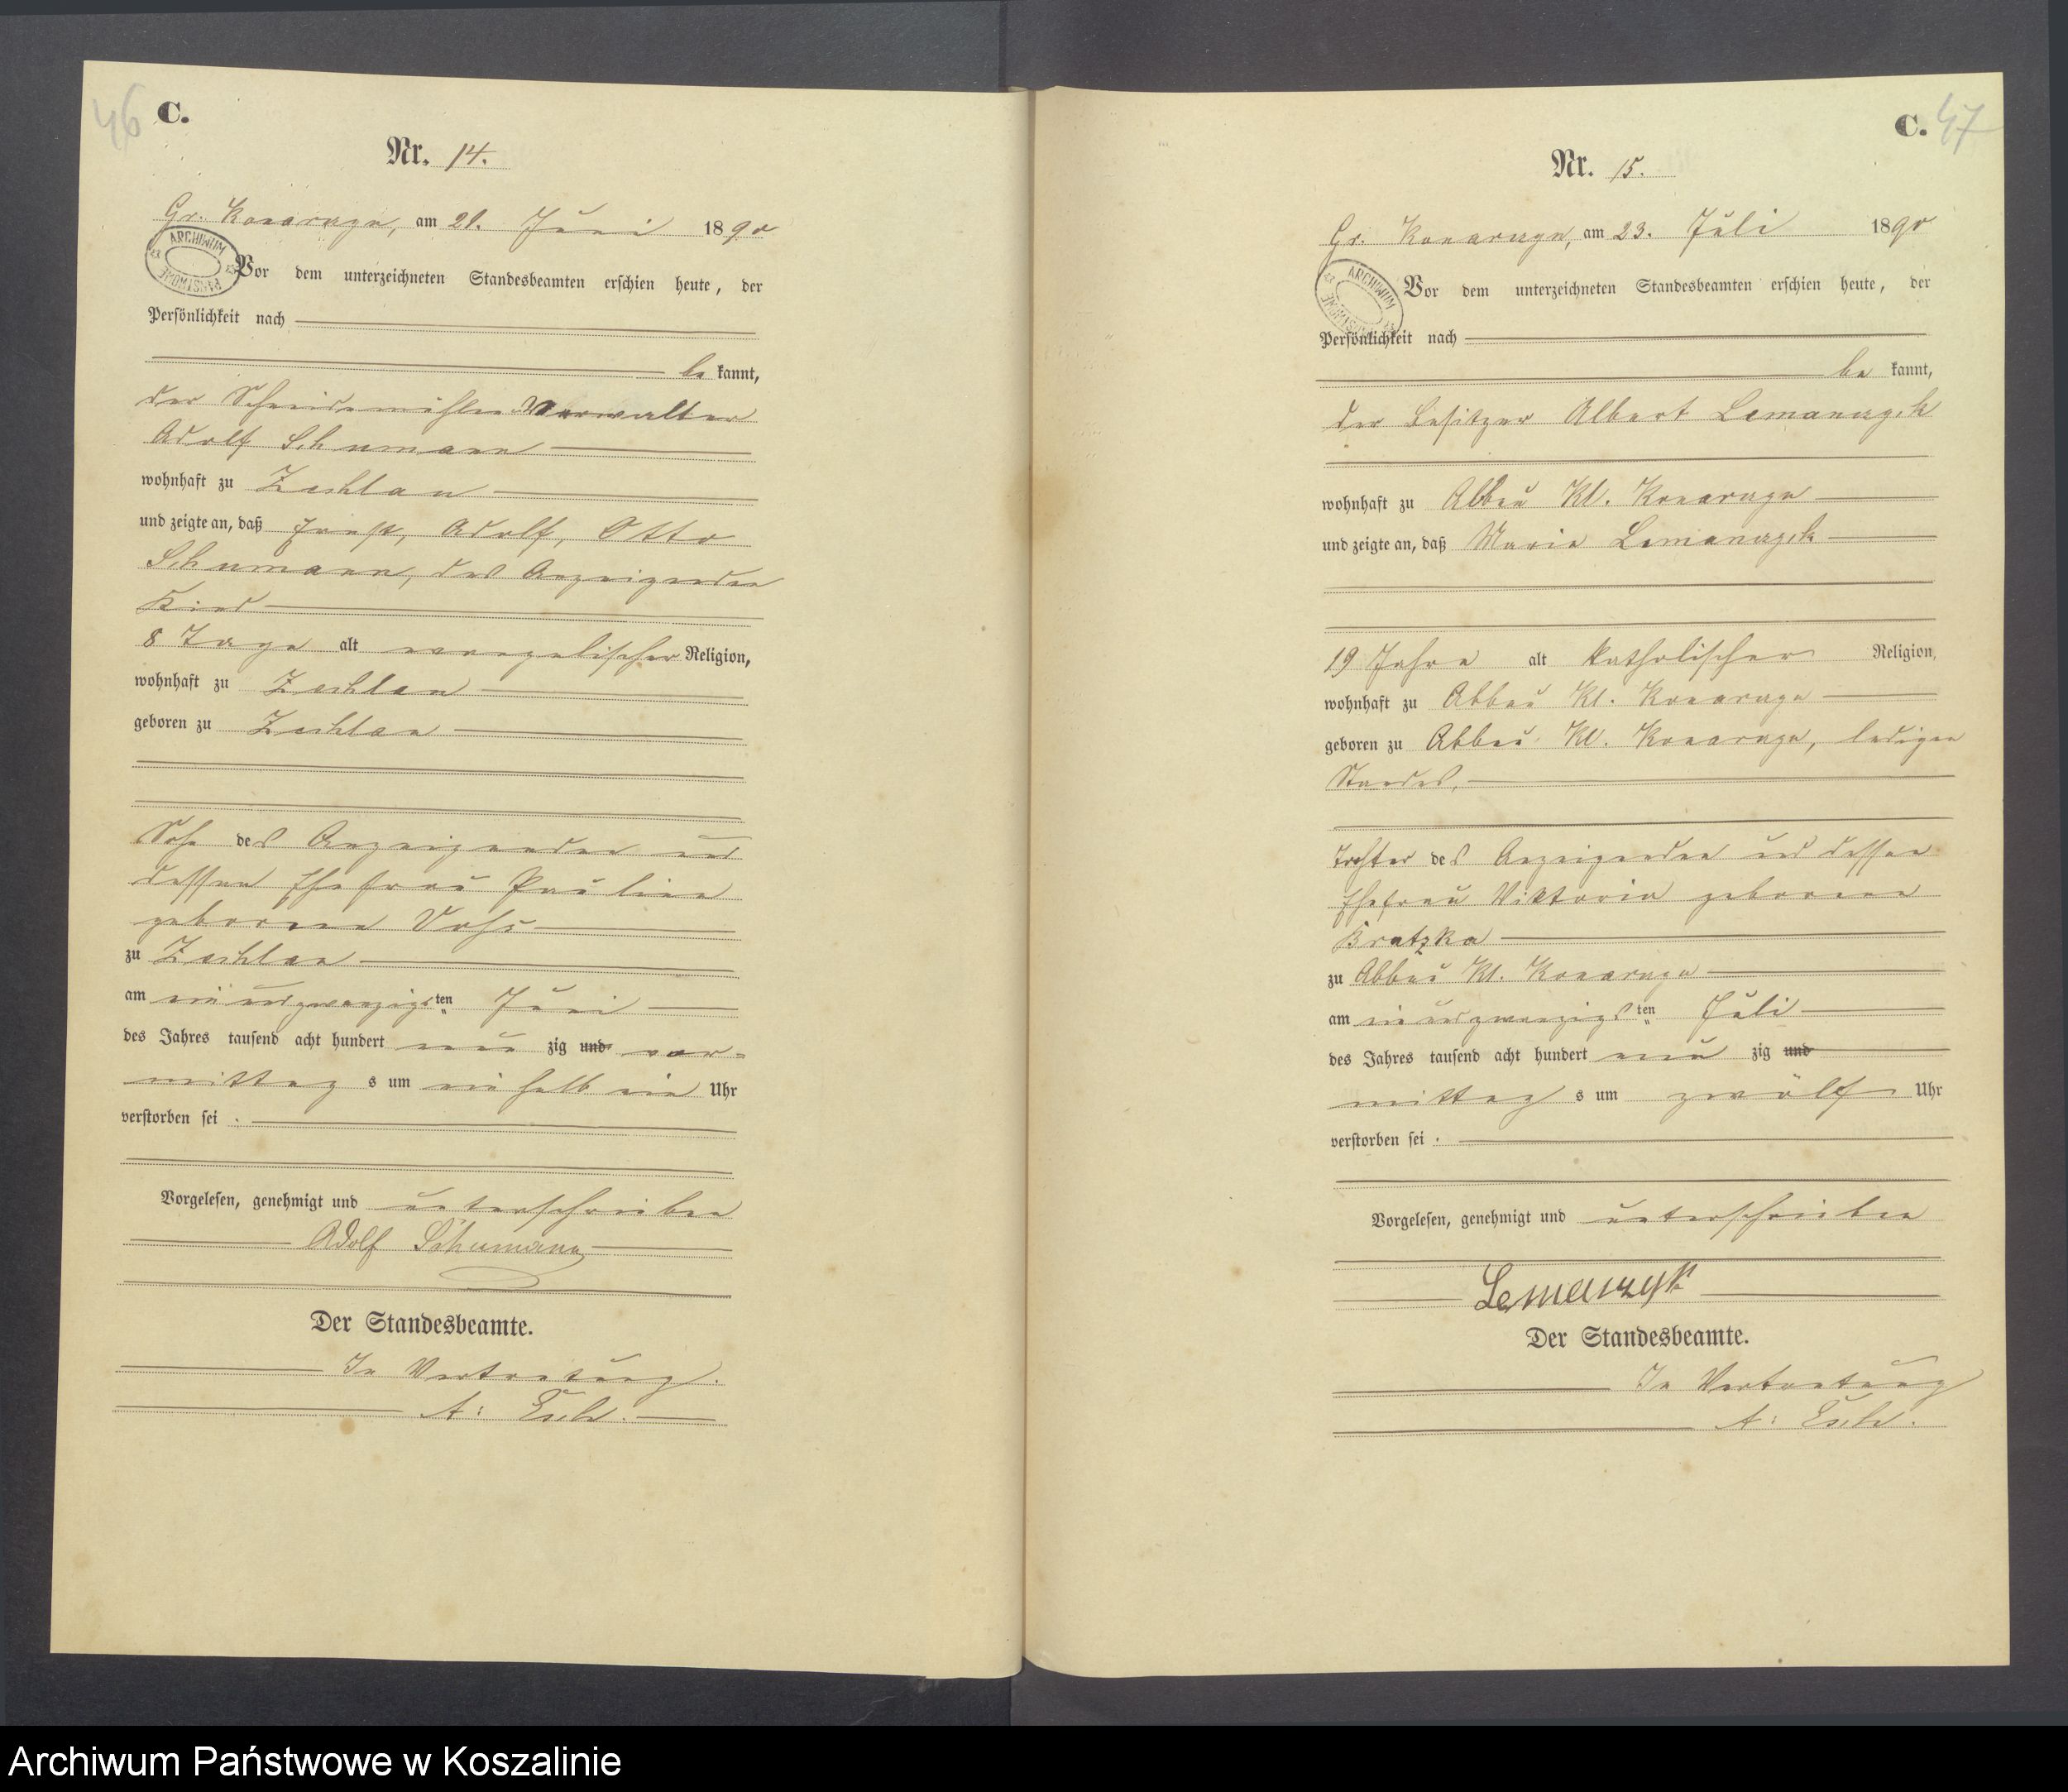 46 C.
Nr. 14.
Gr. Konarzyn, am 21. Juni 1890
ARCHIWUM PAŃSTWOWE
Vor dem unterzeichneten Standesbeamten erschien heute, der
Persönlichkeit nach
be kannt,
der Schneidemühlen Verwalter
Adolf Schumann
wohnhaft zu Zechlau
und zeigte an, daß Ernst, Adolf, Otto
Schumann, des Anzeigenden
Kind
8 Tage alt evangelischer Religion,
wohnhaft zu Zechlau
geboren zu Zechlau
Sohn des Anzeigenden und
dessen Ehefrau Pauline
geborenen Voss
zu Zechlau
am einundzwanzigsten Juni
des Jahres tausend acht hundert neun zig und vor-
mittags um ein halb ein Uhr
verstorben sei.
Vorgelesen, genehmigt und unterschrieben
Adolf Schumann
Der Standesbeamte.
In Vertretung.
A:
C. 47
Nr. 15.
Gr. Konarzyn, am 23. Juli 1890
ARCHIWUM PAŃSTWOWE
Vor dem unterzeichneten Standesbeamten erschien heute, der
Persönlichkeit nach
be kannt,
der Besitzer Albert Lemanczyk
wohnhaft zu Abbau Kl. Konarzyn
und zeigte an, daß Maria Lemanczyk
19 Jahre alt katholischer Religion,
wohnhaft zu Abbau Kl. Konarzyn
geboren zu Abbau Kl. Konarzyn, ledigen
Standes,
Tochter des Anzeigenden und dessen
Ehefrau Viktoria geborenen
Bratzka
zu Abbau Kl. Konarzyn
am einundzwanzigsten Juli
des Jahres tausend acht hundert neun zig und
mittags um zwölf Uhr
verstorben sei.
Vorgelesen, genehmigt und unterschrieben
Lemanczyk
Der Standesbeamte.
In Vertretung
A:
Archiwum Państwowe w Koszalinie